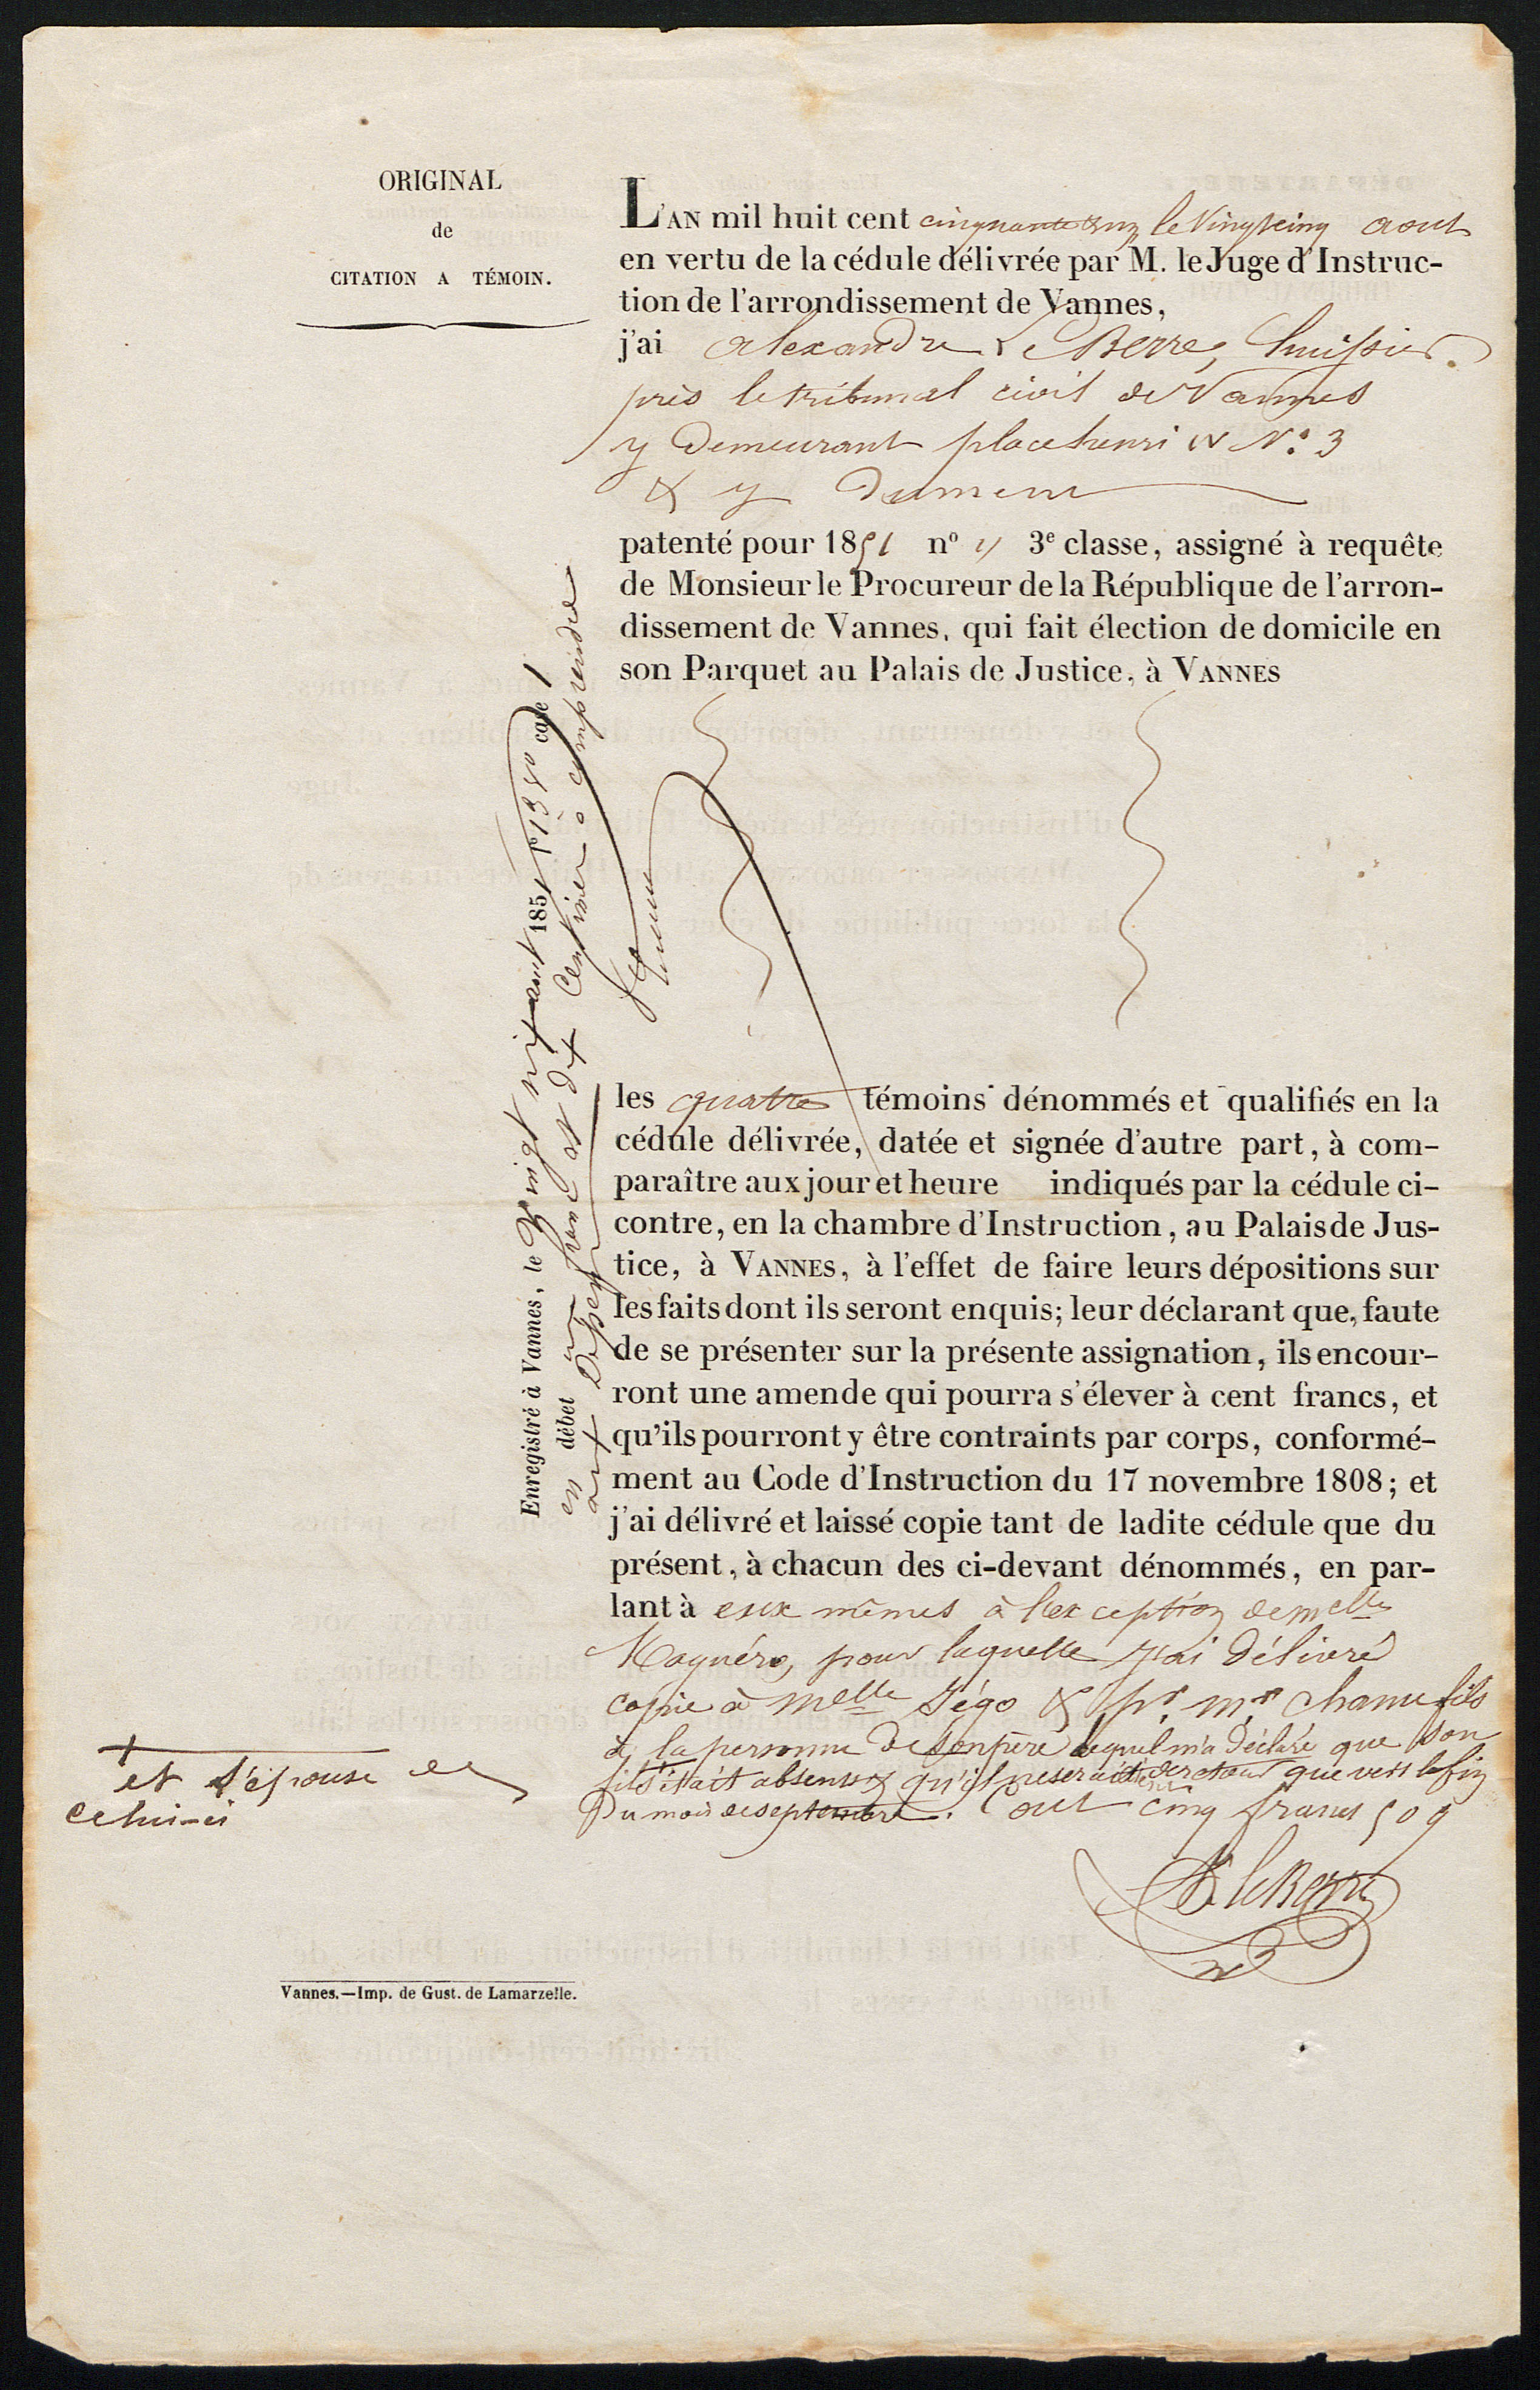 ORIGINAL
de
CITATION A TÉMOIN.
L'AN mil huit cent cinquante un, le Vingt cinq aout
en vertu de la cédule délivrée par M. le Juge d'Instruc-
tion de l'arrondissement de Vannes,
j'ai alexandre Le Berre, huissier
près le tribunal civil de Vannes
y demeurant place henri IV N° 3
& y
patenté pour 1851 n° 3e classe, assigné à requête
de Monsieur le Procureur de la République de l'arron-
dissement de Vannes, qui fait élection de domicile en
son Parquet au Palais de Justice, à VANNES
les quatre témoins dénommés et qualifiés en la
cédule délivrée, datée et signée d'autre part, à com-
paraître aux jour et heure indiqués par la cédule ci-
contre, en la chambre d'Instruction, au Palais de Jus-
tice, à VANNES, à l'effet de faire leurs dépositions sur
les faits dont ils seront enquis; leur déclarant que, faute
de se présenter sur la présente assignation, ils encour-
ront une amende qui pourra s'élever à cent francs, et
qu'ils pourront y être contraints par corps, conformé-
ment au Code d'Instruction du 17 novembre 1808; et
j'ai délivré et laissé copie tant de ladite cédule que du
présent, à chacun des ci-devant dénommés, en par-
lant à eux mêmes à l'exception de melle
Magnéro, pour laquelle j'ai délivré
copie à melle Ségo & pr. mr chanu fils
à la personne de son père lequel m'a déclaré que son
fils était absent & qu'il ne serait de retour que vers la fin
du mois de septembre. Cout cinq francs 50 c
A. le Berre
et l'épouse de
celui-ci
Enregistré à Vannes, le Vingt six aout 1851 f° 13 v° case 1
en débet un franc et dix centimes a comprendre
aux dépens
Vannes.—Imp. de Gust. de Lamarzelle.